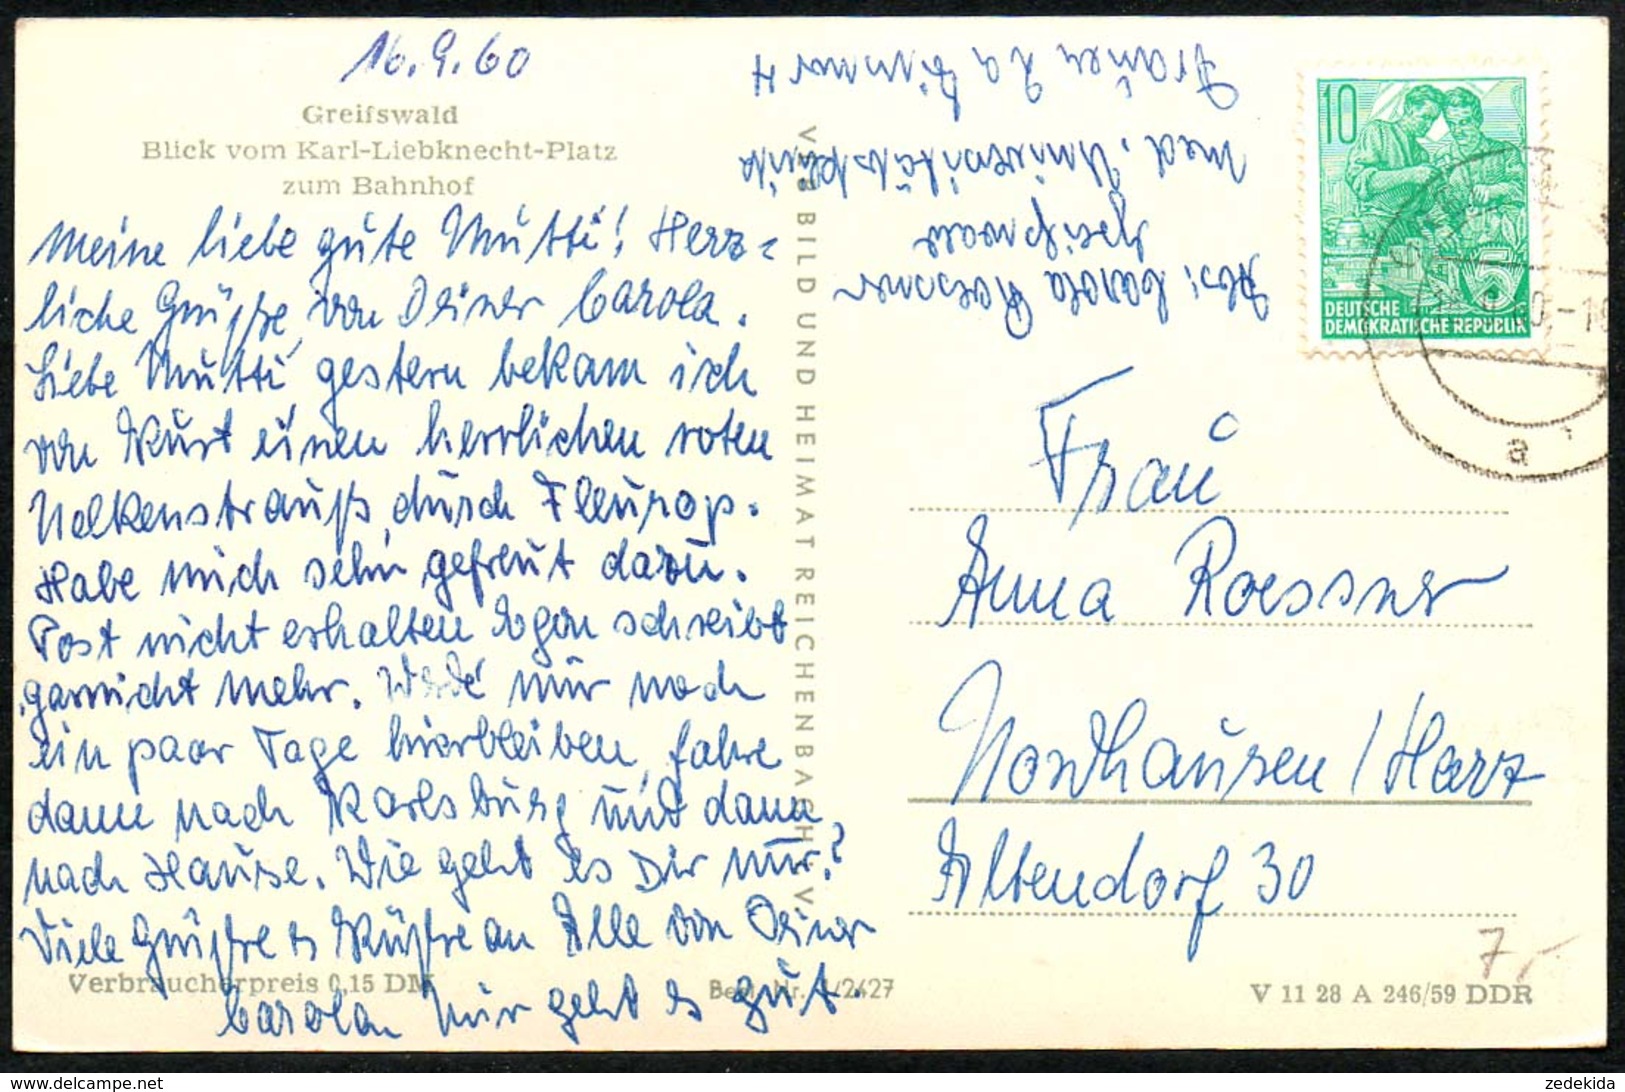 16.9.60
Greifswald
Blick vom Karl-Liebknecht-Platz
zum Bahnhof
Meine liebe gute Mutti! Herz=
liche Grüße von Deiner Carola.
Liebe Mutti, gestern bekam ich
von Kurt einen herrlichen roten
Nelkenstrauß, durch Fleurop.
Habe mich sehr gefreut dazu.
Post nicht erhalten Egon schreibt
garnicht mehr. Werde nur noch
ein paar Tage hierbleiben, fahre
dann nach Karlsburg und dann
nach Hause. Wie geht es Dir nur?
Viele Grüße & Küße an Alle von Deiner
Carola Mir geht es gut.
Verbraucherpreis 0,15 DM
Best.-Nr. /2427
VEB BILD UND HEIMAT REICHENBACH V
Abs: Carola Roessner
Greifswald
med. Universitätsklinik
Frauen
10
DEUTSCHE
DEMOKRATISCHE REPUBLIK
5
60.-18
a
Frau
Anna Roessner
Nordhausen / Harz
Altendorf 30
7,-
V 11 28 A 246/59 DDR
zedekida